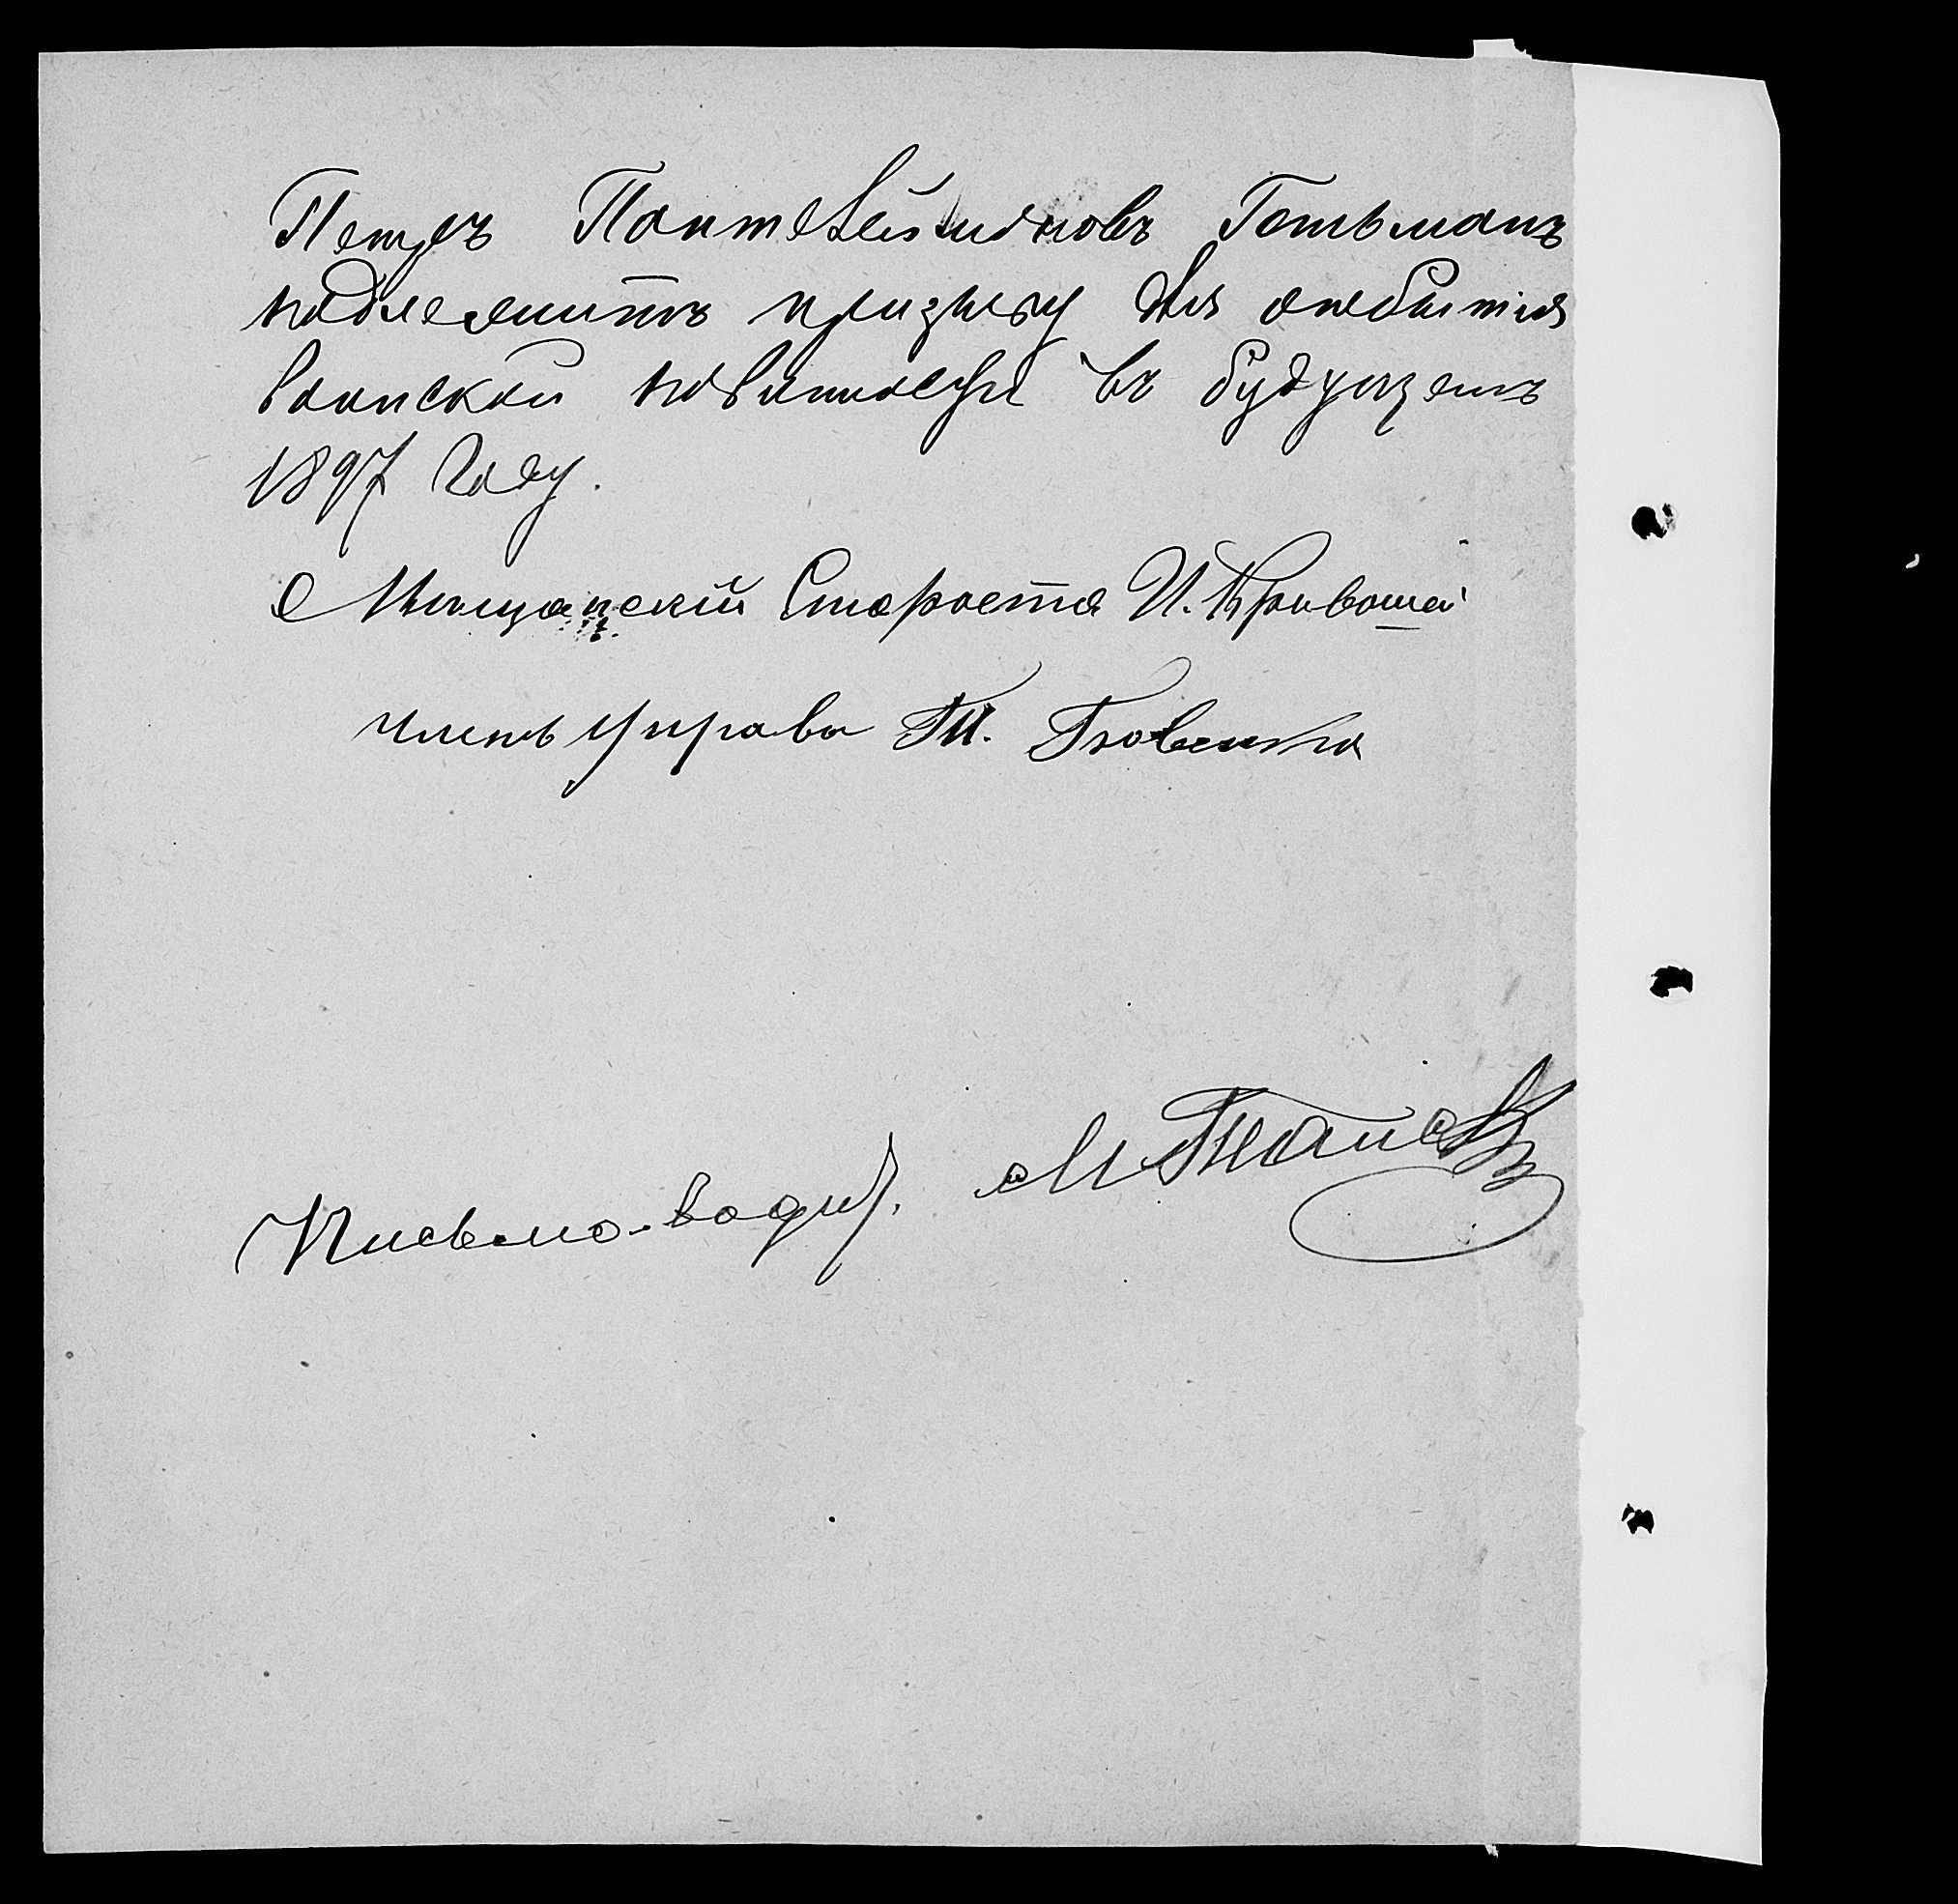 Петръ Пантелеймоновъ Гетьманъ
подлежитъ призыву для отбытія
воинской повинности въ будущемъ
1897 году.
Мѣщанскій Староста И. Кривошей
членъ управы
Письмо-водит.